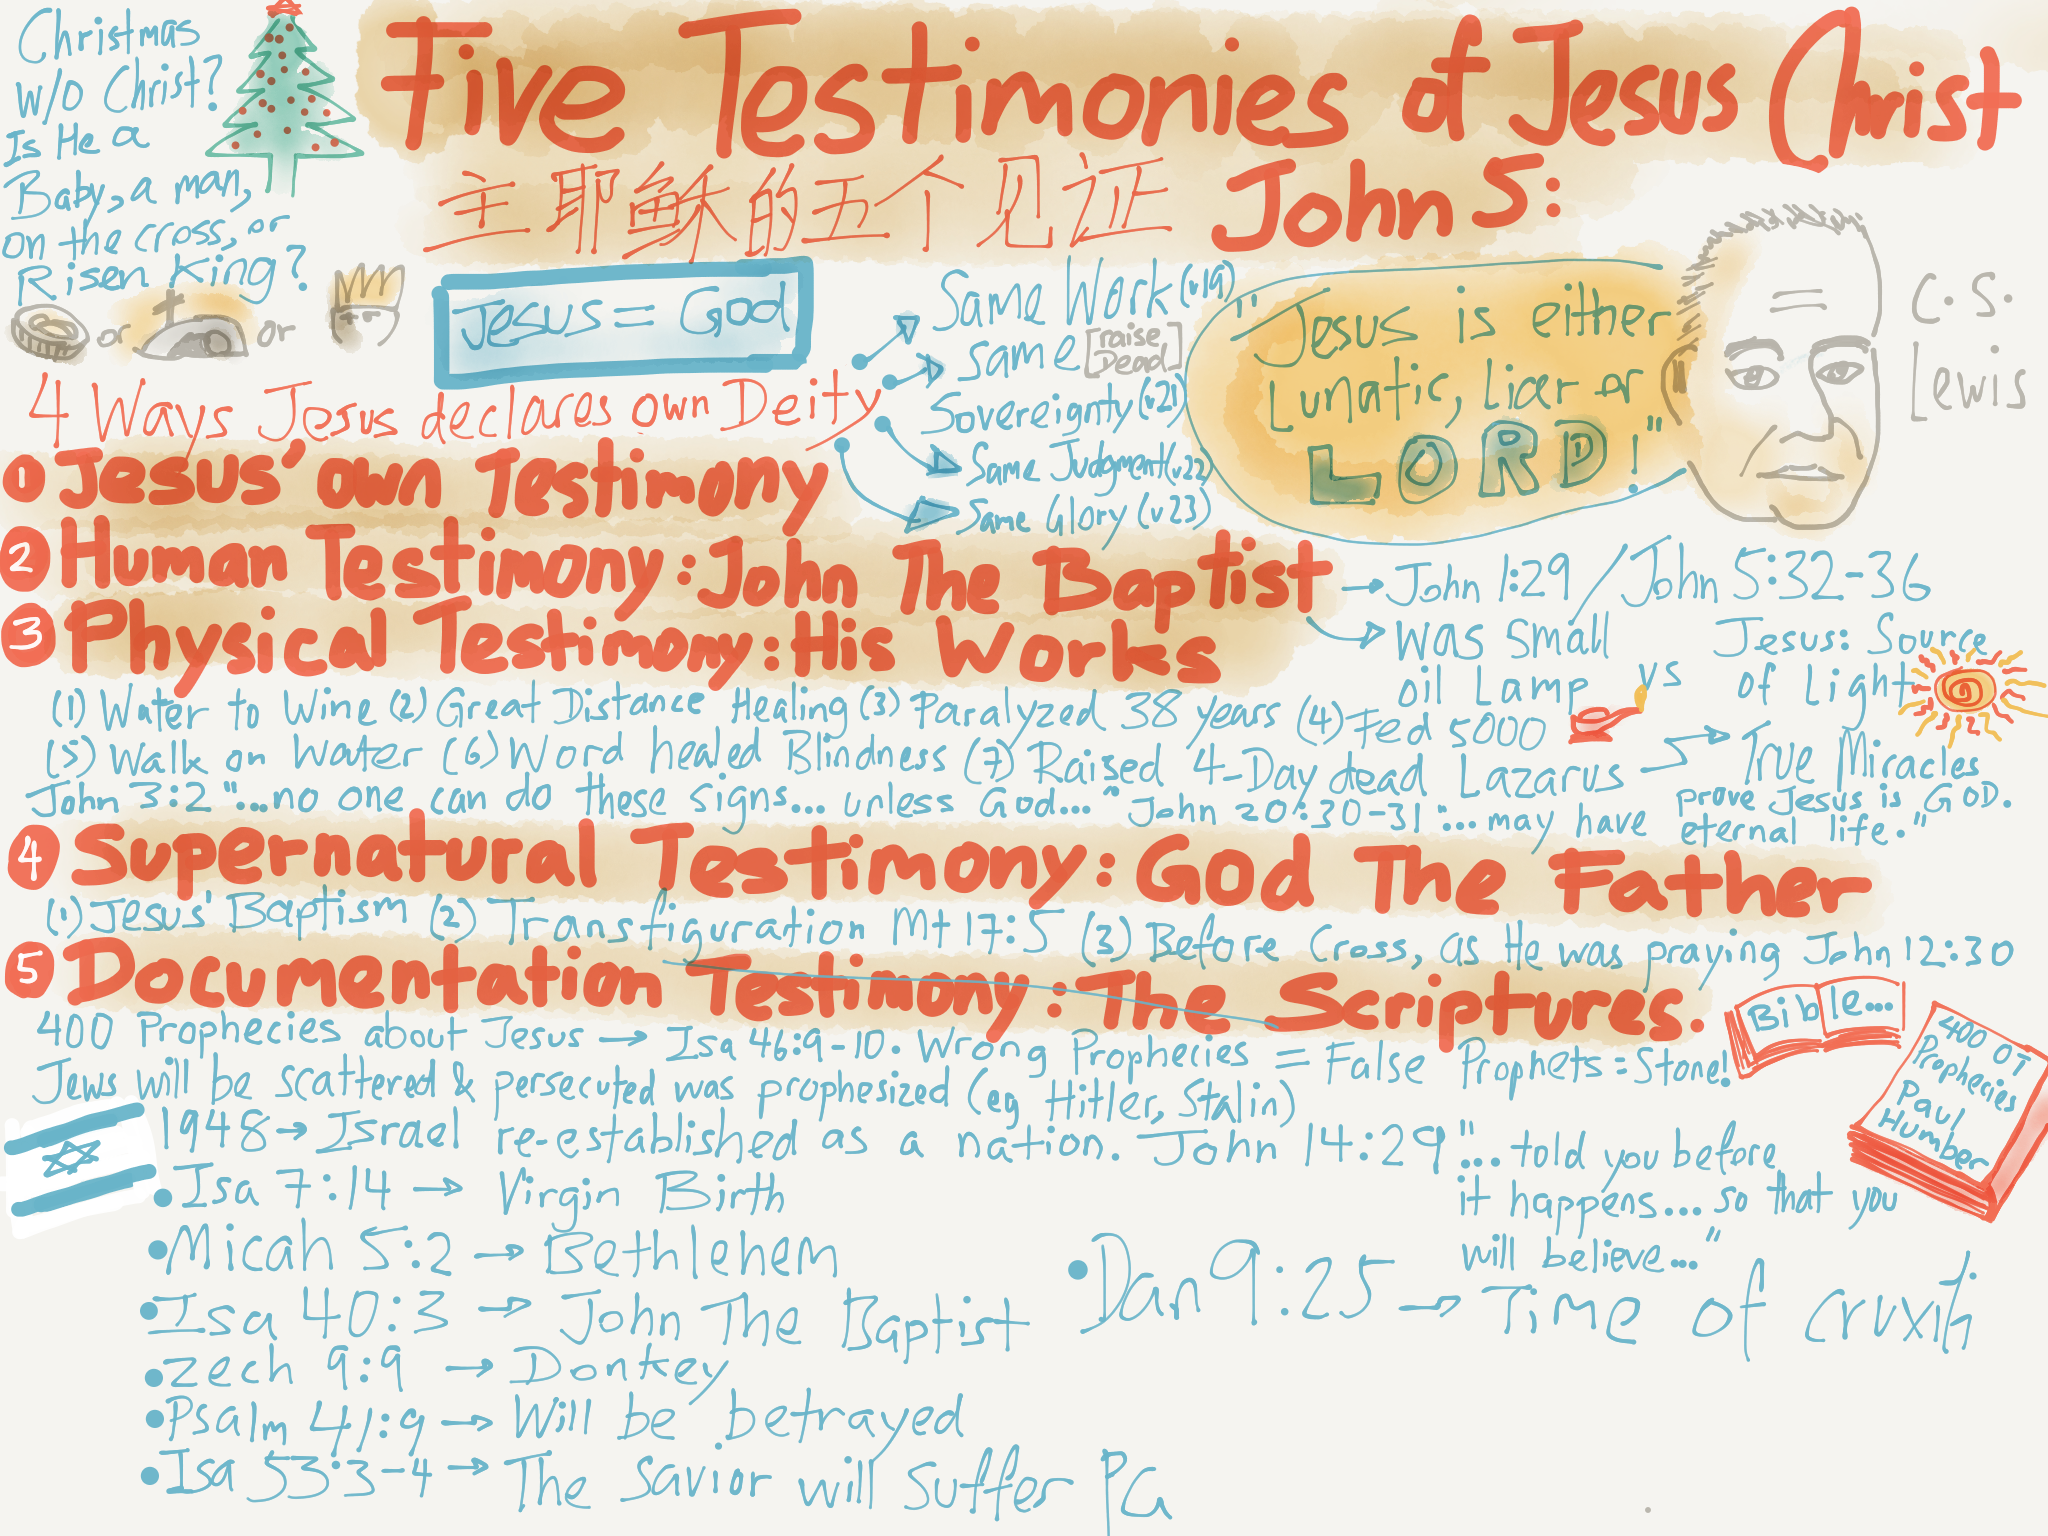 Christmas
w/o Christ?
Is He a
Baby, a man,
on the cross, or
Risen King?
or
or
Five Testimonies of Jesus Christ
主耶稣的五个见证 John 5:
Jesus = God
4 Ways Jesus declares own Deity
Same Work (v19)
Same [raise Dead]
Sovereignty (v21)
Same Judgment (v22)
Same Glory (v23)
"Jesus is either
Lunatic, Liar or
LORD!"
C.S.
Lewis
1 Jesus' own Testimony
2 Human Testimony: John The Baptist → John 1:29 / John 5:32-36
→ was small
oil Lamp
vs
Jesus: Source
of Light
3 Physical Testimony: His Works
(1) Water to Wine (2) Great Distance Healing (3) Paralyzed 38 years (4) Fed 5000
(5) Walk on Water (6) Word healed Blindness (7) Raised 4-Day dead Lazarus → True Miracles
prove Jesus is GOD.
John 3:2 "...no one can do these signs... unless God..." John 20:30-31 "...may have eternal life."
4 Supernatural Testimony: God The Father
(1) Jesus' Baptism (2) Transfiguration Mt 17:5 (3) Before Cross, as He was praying John 12:30
5 Documentation Testimony: The Scriptures.
Bible...
400 OT
Prophecies
Paul
Humber
400 Prophecies about Jesus → Isa 46:9-10. Wrong Prophecies = False Prophets = Stone!
Jews will be scattered & persecuted was prophesized (eg Hitler, Stalin)
1948 → Israel re-established as a nation. John 14:29 "... told you before
it happens... so that you
will believe..."
• Isa 7:14 → Virgin Birth
• Micah 5:2 → Bethlehem
• Isa 40:3 → John The Baptist
• Zech 9:9 → Donkey
• Psalm 41:9 → Will be betrayed
• Isa 53:3-4 → The Savior will suffer
• Dan 9:25 → Time of